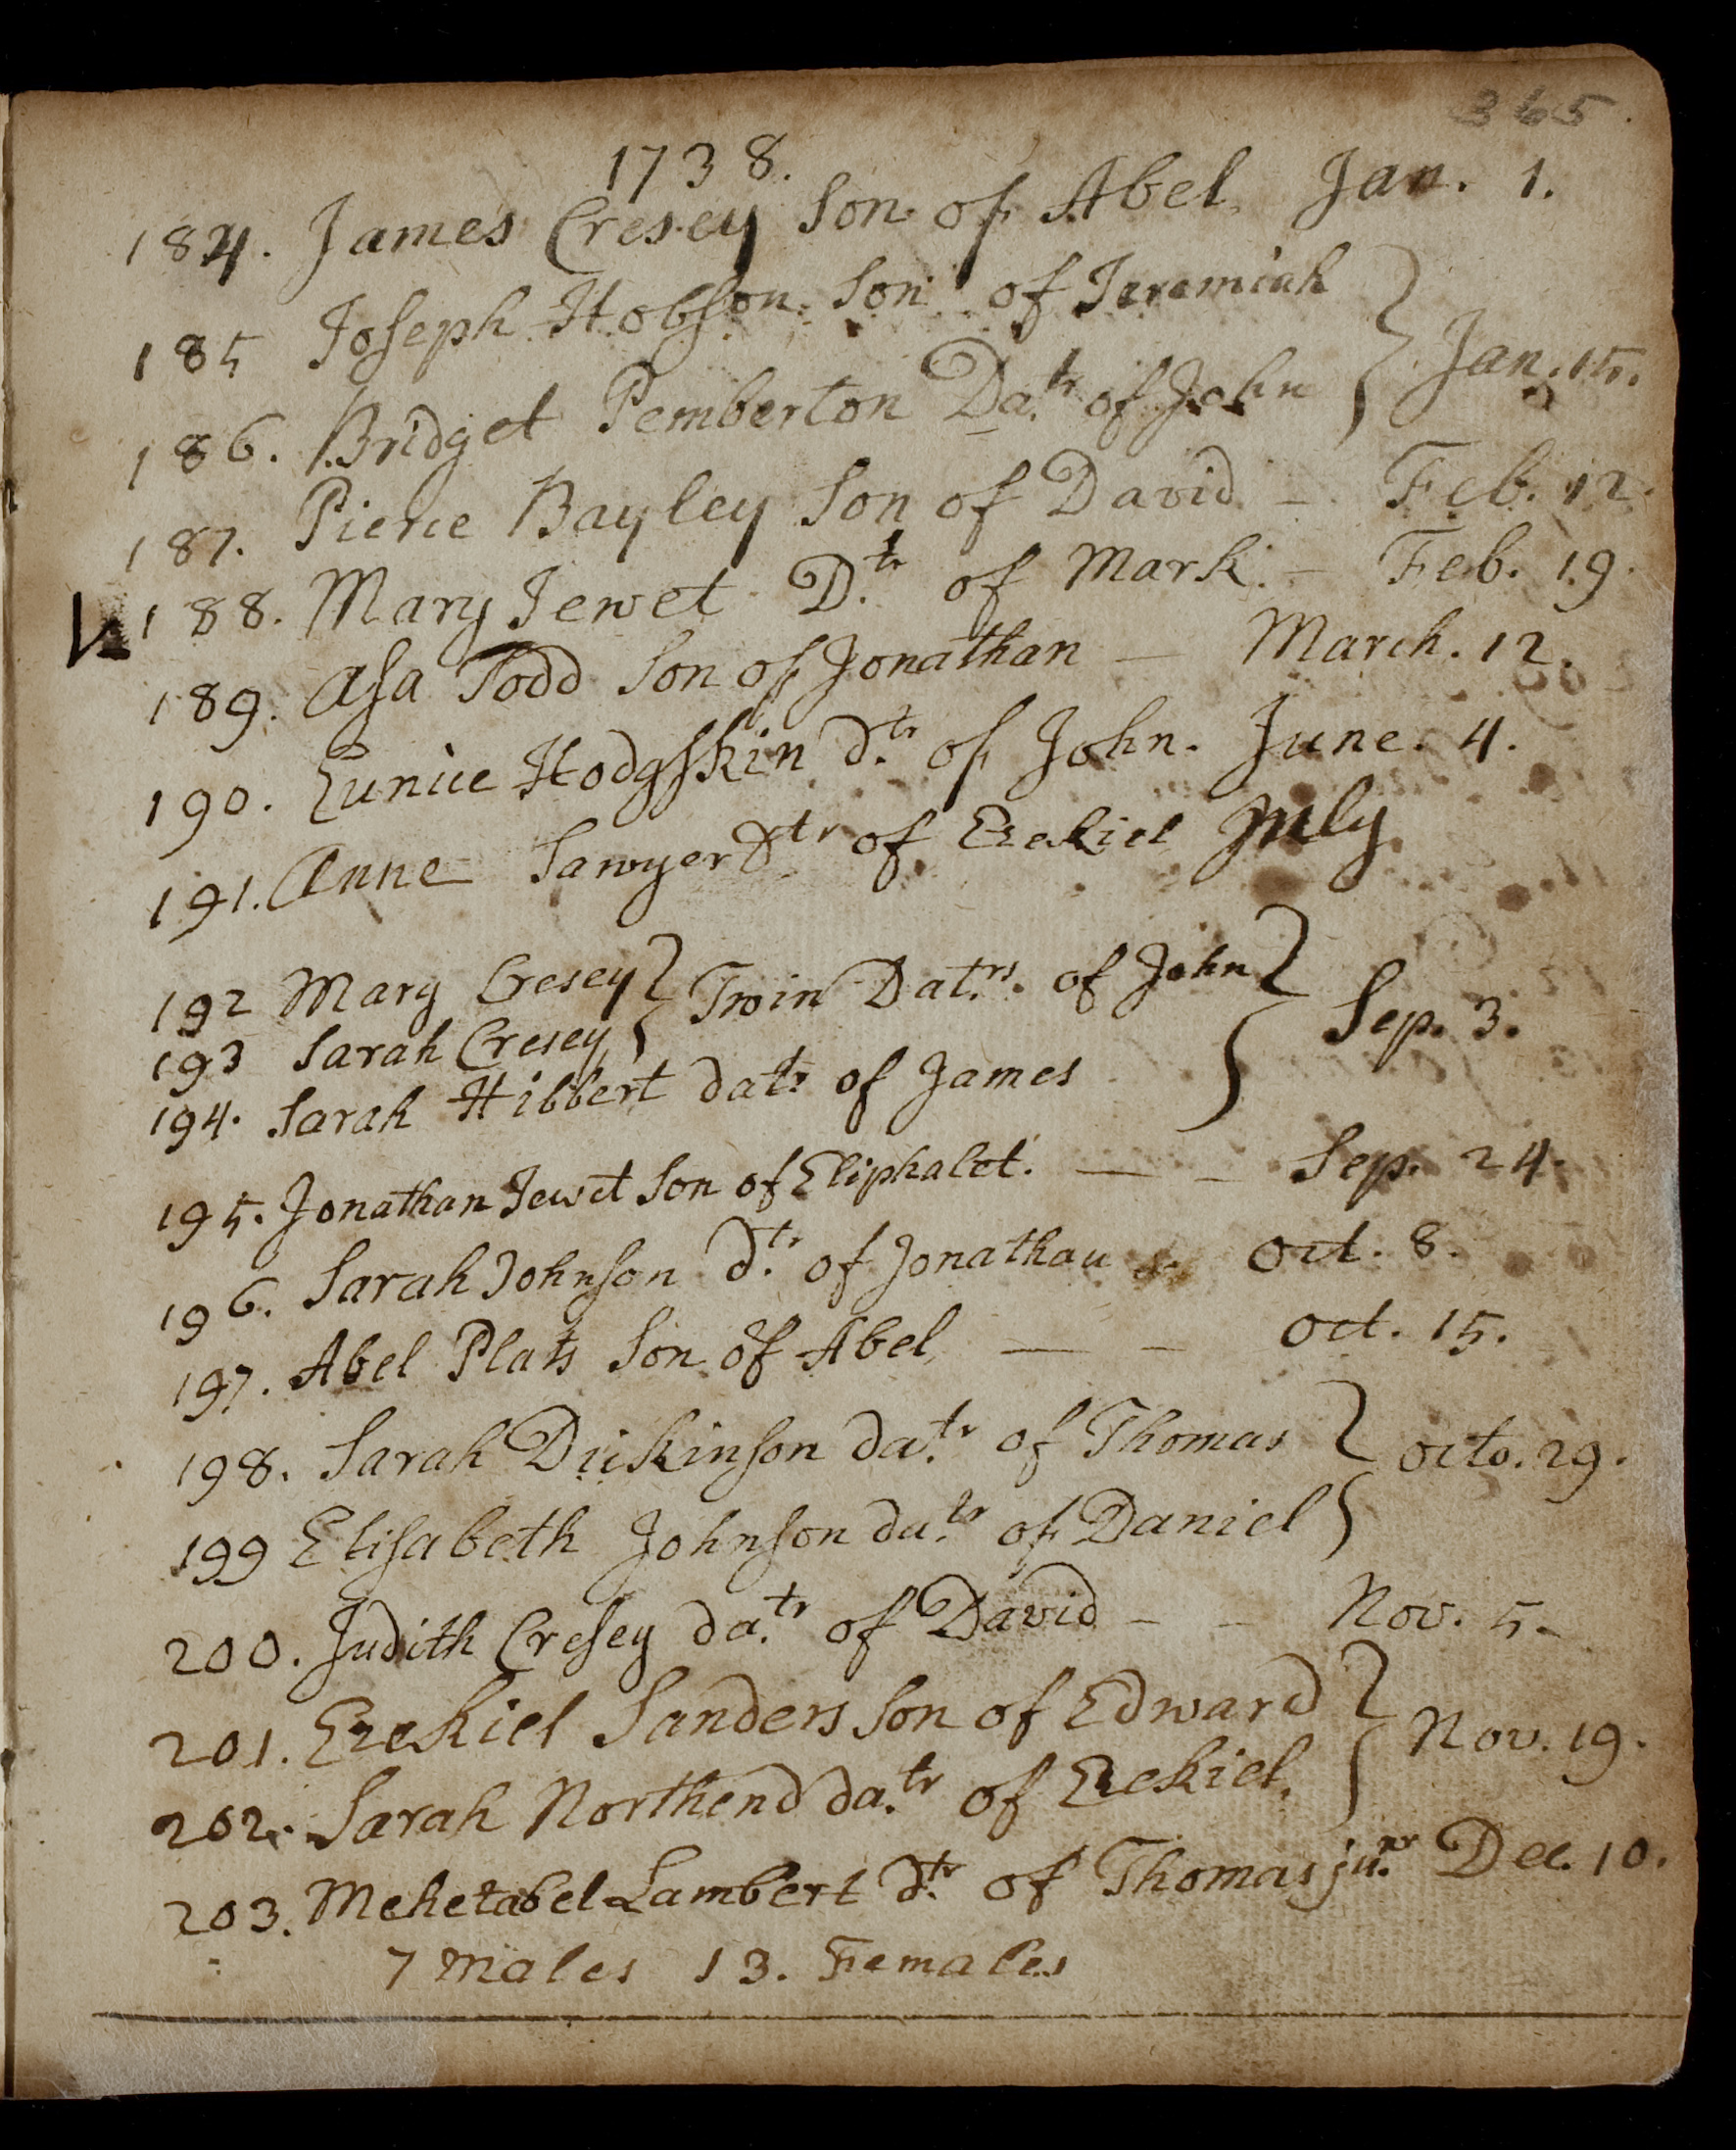 365.
1738.
184. James Cresey Son of Abel Jan. 1.
185 Joseph Hobson. Son of Jeremiah
186. Bridget Pemberton Da.tr of John } Jan. 15.
187. Pierce Bayley Son of David - Feb. 12.
188. Mary Jewet D.tr of Mark. - Feb. 19.
189. Asa Todd Son of Jonathan — March. 12.
190. Eunice Hodgskin d.tr of John. June. 4.
191. Anne Sawyer dtr of Ezekiel July
192 Mary Cresey } Twin Dat.rs. of John }
193 Sarah Cresey } Sep. 3.
194. Sarah Hibbert datr of James
195. Jonathan Jewet Son of Eliphalet. — - Sep. 24.
196. Sarah Johnson d.tr of Jonathan Oct. 8.
197. Abel Plats Son of Abel — - Oct. 15.
198. Sarah Dickinson da.tr of Thomas } Octo. 29.
199 Elisabeth Johnson da.tr of Daniel
200. Judith Cresey da.tr of David - - Nov. 5.
201. Ezekiel Sanders Son of Edward } Nov. 19.
202. Sarah Northend da.tr of Ezekiel.
203. Mehetabel Lambert d.tr of Thomas ju.nr Dec. 10.
7 Males 13. Females